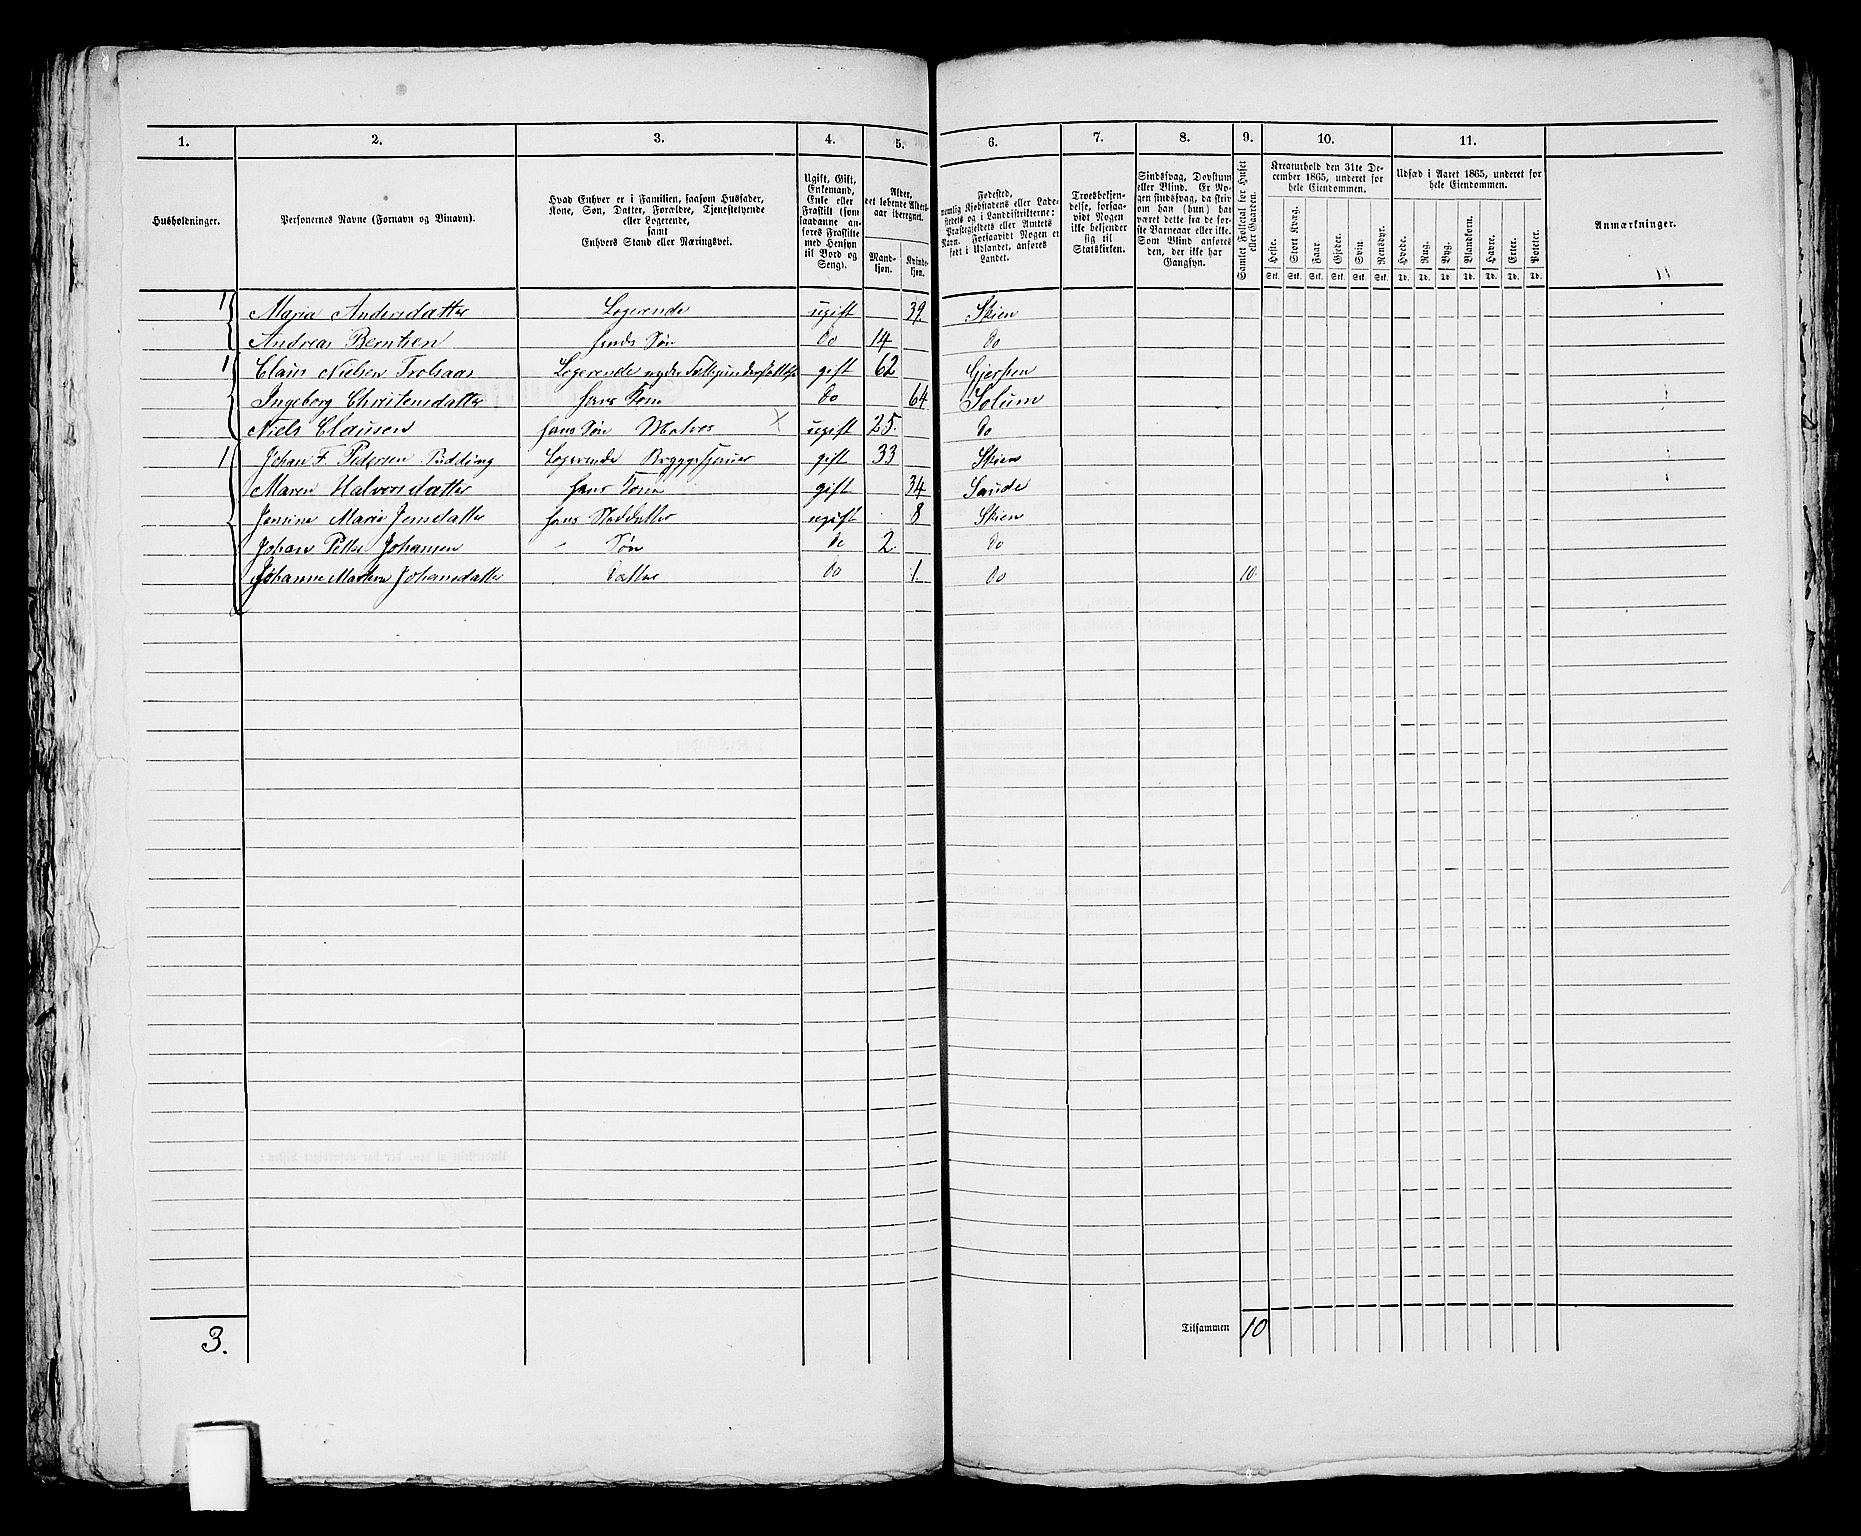 1. 2. 3. 4. 5. 6. 7. 8. 9. 10. 11.
Husholdninger.
Personernes Navne (Fornavn og Binavn).
Hvad Enhver er i Familien, saasom Husfader,
Kone, Søn, Datter, Forældre, Tjenestetyende
eller Logerende,
samt
Enhvers Stand eller Næringsvei.
Ugift, Gift,
Enkemand,
Enke eller
Fraskilt (som
saadanne an-
føres Fraskilte
med Hensyn
til Bord og
Seng).
Alder,
det løbende Alders-
aar iberegnet.
Mand-
kjøn.
Kvinde-
kjøn.
Fødested,
nemlig Kjøbstadens eller Lade-
stedets og i Landdistrikterne:
Præstegjeldets eller Amtets
Navn. Forsaavidt Nogen er
født i Udlandet, anføres
Landet.
Troesbekjen-
delse, forsaa-
vidt Nogen
ikke bekjender
sig til
Statskirken.
Sindssvag, Døvstum
eller Blind. Er No-
gen sindssvag, da skriv
om han (hun) har
været dette fra de før-
ste Barneaar eller ikke.
Som Blind anføres
den, der ikke har
Gangsyn.
Samlet Folketal for Huset
eller Gaarden.
Kreaturhold den 31te De-
cember 1865, underet for
hele Eiendommen.
Heste. Stort Kvæg. Faar. Gjeder. Svin. Rensdyr.
Stk. Stk. Stk. Stk. Stk. Stk.
Udsæd i Aaret 1865, underet for
hele Eiendommen.
Hvede. Rug. Byg. Blandkorn. Havre. Erter. Poteter.
Td. Td. Td. Td. Td. Td. Td.
Anmærkninger.
1 Maria Andersdatter Logerende ugift 39 Skien
Andreas Berntsen hends Søn Do 14 Do
1 Claus Nielsen Trolsaas Logerende nyder Fattigunderstøttelse gift 62 Gjerpen
Ingeborg Christensdatter hans Kone Do 64 Solum
Niels Clausen hans Søn Matros X ugift 25. Do
1 Johan F. Pedersen Pudding Logerende Bryggesjouer gift 33 Skien
Maren Halvorsdatter hans Kone gift 34 Saude
Jensine Marie Jensdatter hans Steddatter ugift 8 Skien
Johan Petter Johansen " Søn Do 2 Do
Johanne Marthea Johansdatter Datter Do 1. Do 10.
3. Tilsammen 10